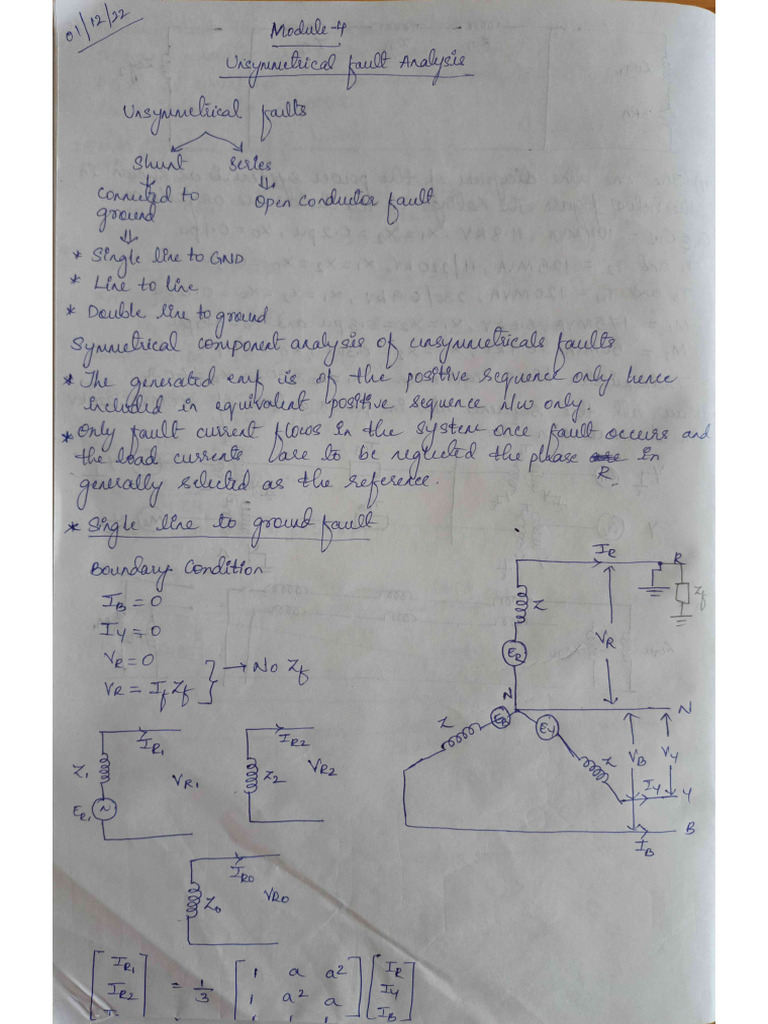 01/12/22
Module-4
Unsymmetrical fault Analysis
Unsymmetrical faults
Shunt Series
connected to ground
open conductor fault
* Single line to GND
* Line to line
* Double line to ground
Symmetrical component analysis of unsymmetricals faults
* The generated emf is of the positive sequence only hence
included in equivalent positive sequence n/w only.
* only fault current flows in the system once fault occurs and
the load currents are to be neglected the phase R in
generally selected as the reference.
* Single line to ground fault
Boundary Condition
IB = 0
IY = 0
VR = 0
VR = If Zf } → No Zf
IR
R
Z
Zf
VR
ER
N
N
Z
EB
EY
Z
VB
VY
IY
Y
B
IB
IR1
Z1
VR1
ER1
IR2
Z2
VR2
IR0
Z0
VR0
[IR1] = 1/3 [1 a a²] [IR]
[IR2] [1 a² a] [IY]
[IB]